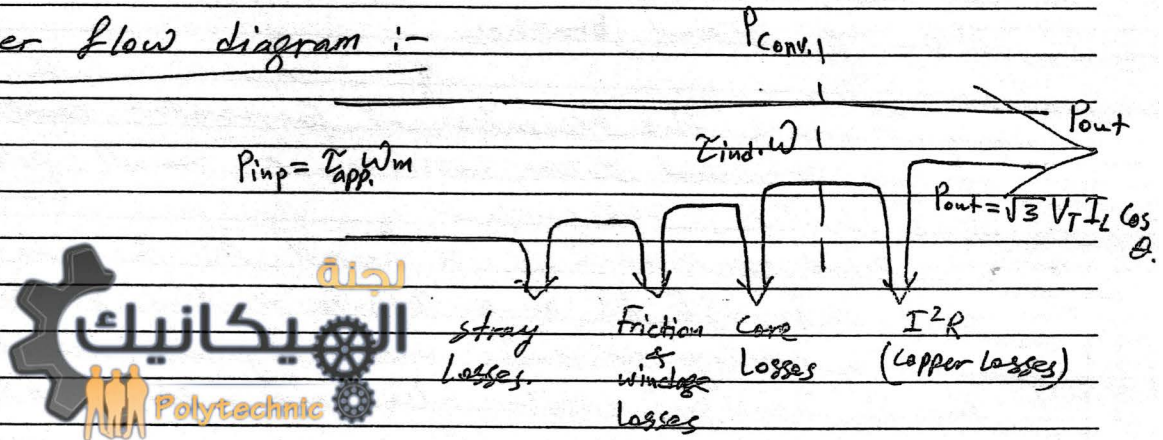 er flow diagram :-
Pconv.
Pout
Pinp = τapp. ωm
τind. ω
Pout = √3 VT IL Cos θ.
stray Losses.
Friction & windage Losses
Core Losses
I²R (Copper Losses)
لجنة
الميكانيك
Polytechnic